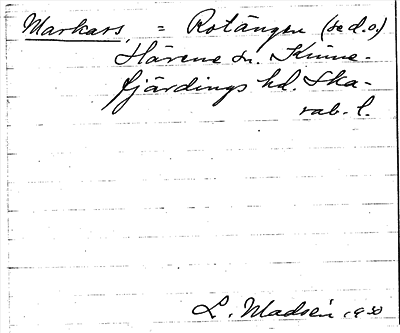 Markars, = Rotängen (se d.o)
Härene sn. Kinne-
fjärdings hd. Ska-
rab. l.
L. Madsén 1930